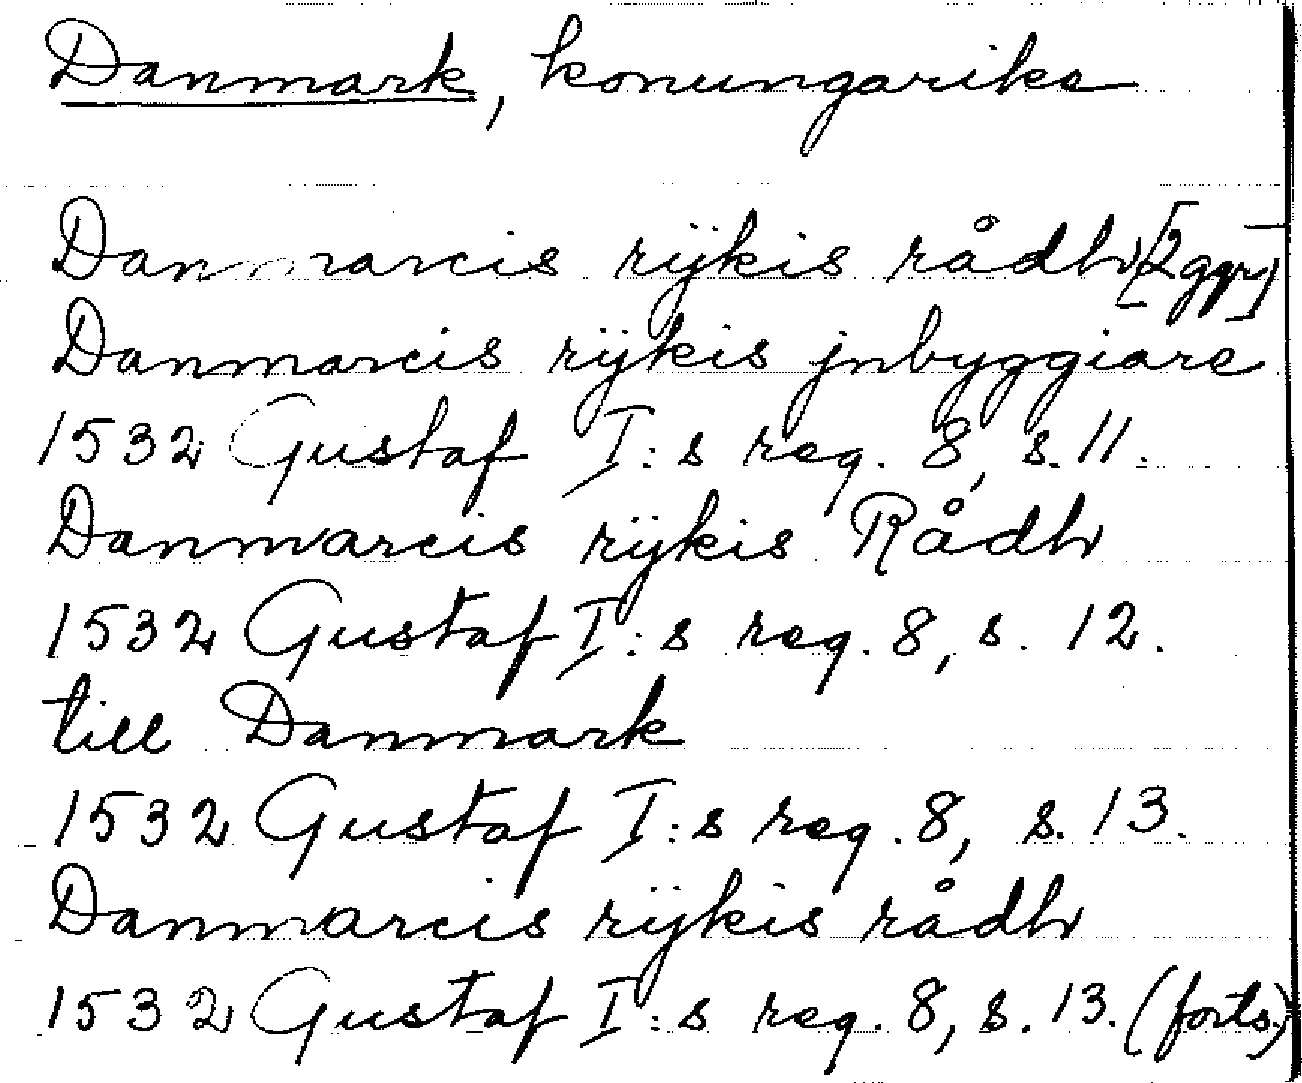 Danmark, konungarike
Danmarcis rijkis rådh [2 ggr]
Danmarcis rijkis jnbyggiare
1532 Gustaf I:s reg. 8, s. 11.
Danmarcis rijkis Rådh
1532 Gustaf I:s reg. 8, s. 12.
till Danmark
1532 Gustaf I:s reg. 8, s. 13.
Danmarcis rijkis rådh
1532 Gustaf I:s reg. 8, s. 13. (forts.)